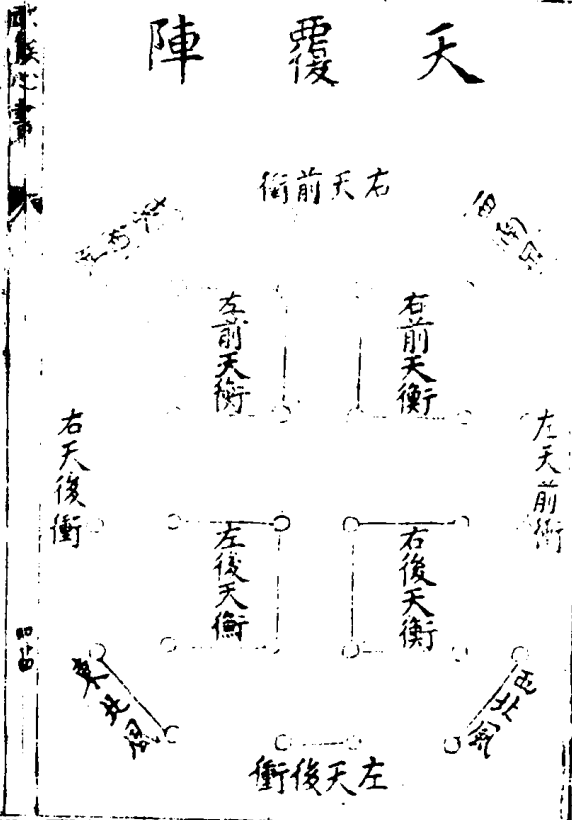 天覆陣
右天前衝
西南風
右前天衡
左前天衡
左天前衝
右天後衝
右後天衡
左後天衡
西北風
東北風
左天後衝
心書